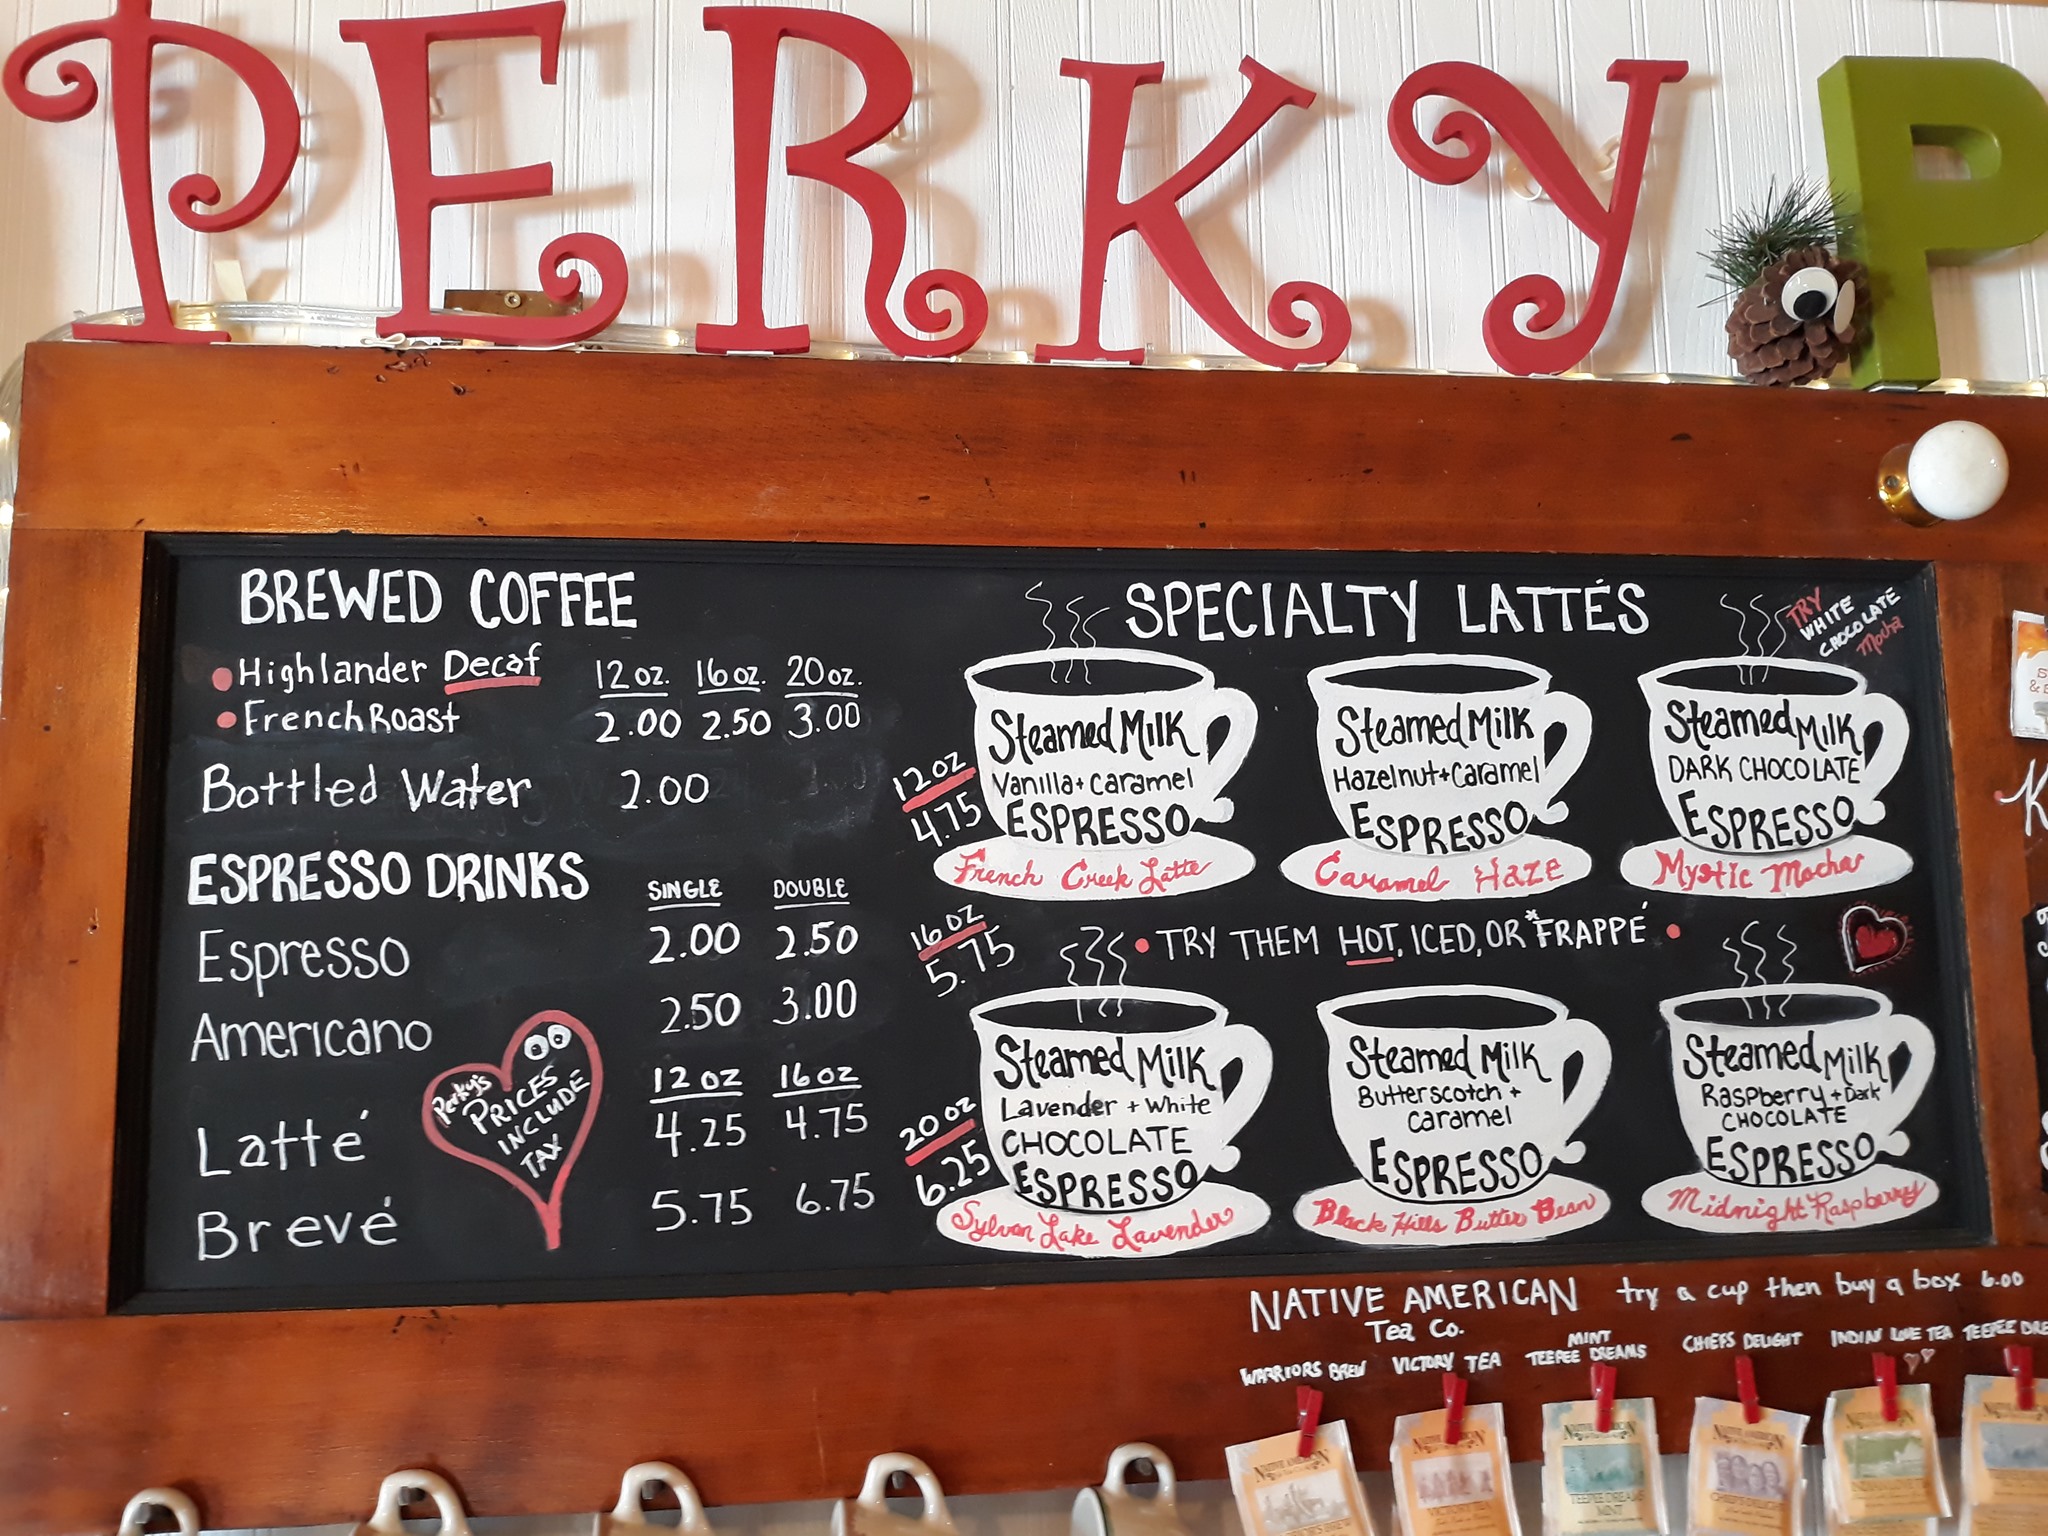 PERKY P
BREWED COFFEE
Highlander Decaf
French Roast
12 oz. 16 oz. 20 oz.
2.00 2.50 3.00
Bottled Water 2.00
ESPRESSO DRINKS
SINGLE DOUBLE
Espresso 2.00 2.50
Americano 2.50 3.00
12 oz 16 oz
Latté 4.25 4.75
Brevé 5.75 6.75
Perky's
PRICES
INCLUDE
TAX
SPECIALTY LATTÉS
TRY
WHITE
CHOCOLATE
Mocha
12 oz
4.75
16 oz
5.75
20 oz
6.25
Steamed Milk
Vanilla + Caramel
ESPRESSO
French Creek Latte
Steamed Milk
Hazelnut + Caramel
ESPRESSO
Caramel Haze
Steamed Milk
DARK CHOCOLATE
ESPRESSO
Mystic Mocha
• TRY THEM HOT, ICED, OR *FRAPPÉ •
Steamed Milk
Lavender + White
CHOCOLATE
ESPRESSO
Sylvan Lake Lavender
Steamed Milk
Butterscotch +
Caramel
ESPRESSO
Black Hills Butter Bean
Steamed Milk
Raspberry + Dark
CHOCOLATE
ESPRESSO
Midnight Raspberry
NATIVE AMERICAN
Tea Co.
try a cup then buy a box 6.00
WARRIORS BREW
VICTORY TEA
MINT
TEEPEE DREAMS
CHIEFS DELIGHT
INDIAN LOVE TEA
TEEPEE DRE
NATIVE AMERICAN
VICTORY TEA
TEEPEE DREAMS
MINT